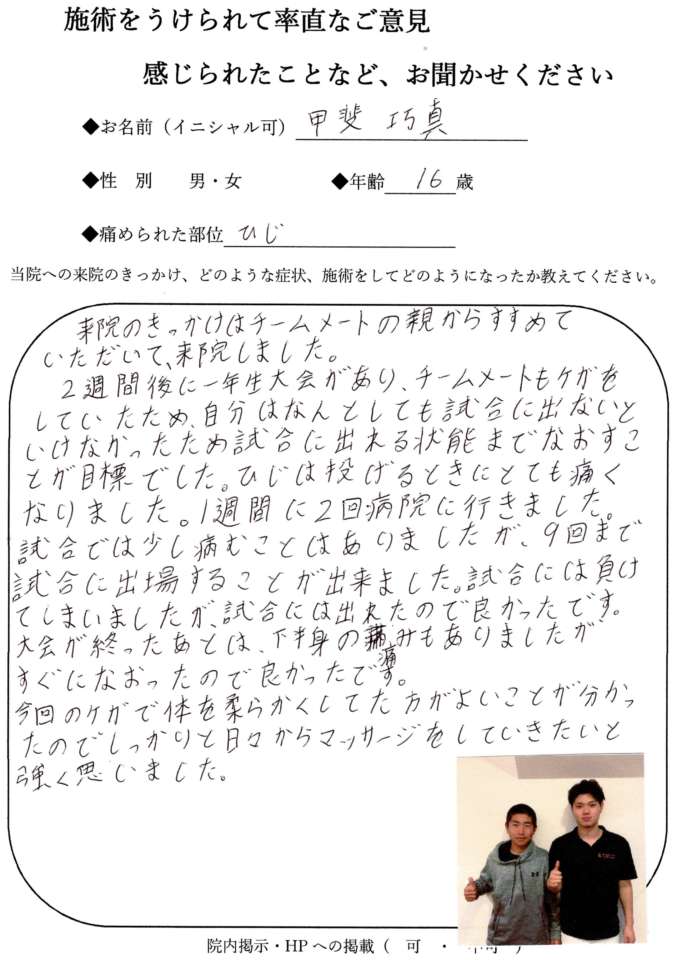 施術をうけられて率直なご意見
感じられたことなど、お聞かせください
◆お名前（イニシャル可） 甲斐 巧真
◆性 別 男・女 ◆年齢 16 歳
◆痛められた部位 ひじ
当院への来院のきっかけ、どのような症状、施術をしてどのようになったか教えてください。
来院のきっかけはチームメートの親からすすめて
いただいて、来院しました。
2週間後に一年生大会があり、チームメートもケガを
していたため、自分はなんとしても試合に出ないと
いけなかったため試合に出れる状態までなおすこ
とが目標でした。ひじは投げるときにとても痛く
なりました。1週間に2回病院に行きました。
試合では少し病むことはありましたが、9回まで
試合に出場することが出来ました。試合には負け
てしまいましたが、試合には出れたので良かったです。
大会が終ったあとは、下半身の痛みもありましたが
すぐになおったので良かったです。
今回のケガで体を柔らかくしてた方がよいことが分かっ
たのでしっかりと日々からマッサージをしていきたいと
強く思いました。
院内掲示・HPへの掲載（ 可 ・ ）